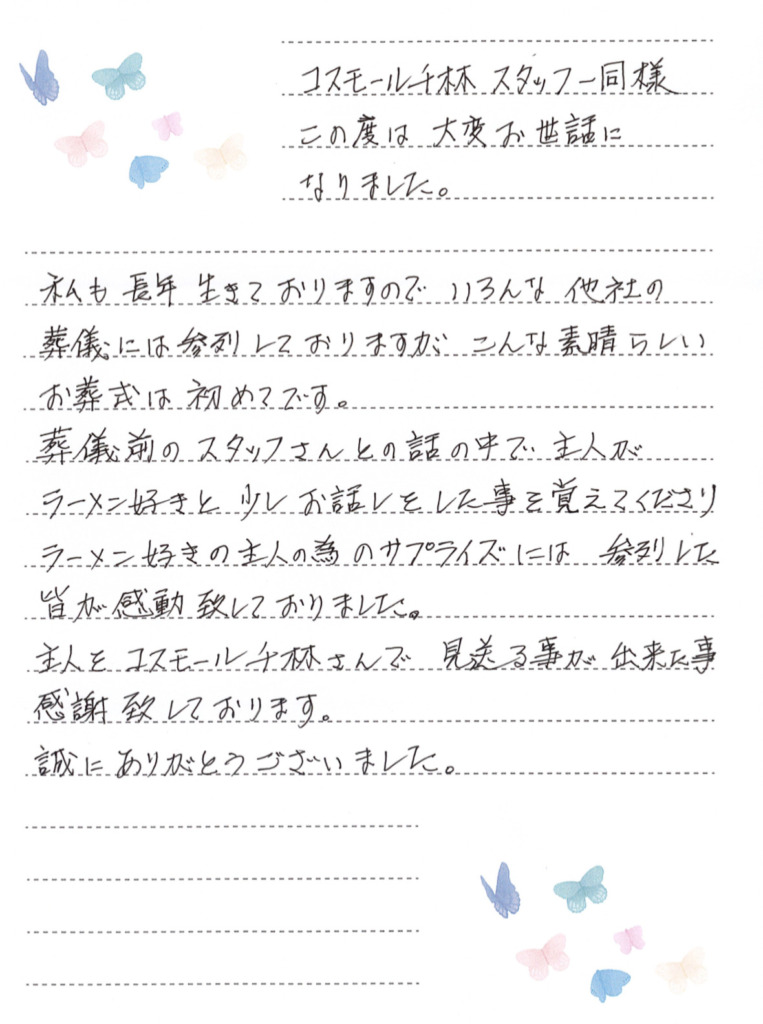 コスモール千林 スタッフ一同様
この度は 大変お世話に
なりました。
私も 長年 生きて おりますので いろんな 他社の
葬儀には参列しておりますが こんな素晴らしい
お葬式は 初めてです。
葬儀前の スタッフさんとの話の中で 主人が
ラーメン好きと 少しお話しをした事を覚えてくださり
ラーメン好きの主人の為のサプライズには 参列した
皆が感動致しておりました。
主人を コスモール千林さんで 見送る事が出来た事
感謝致しております。
誠に ありがとうございました。